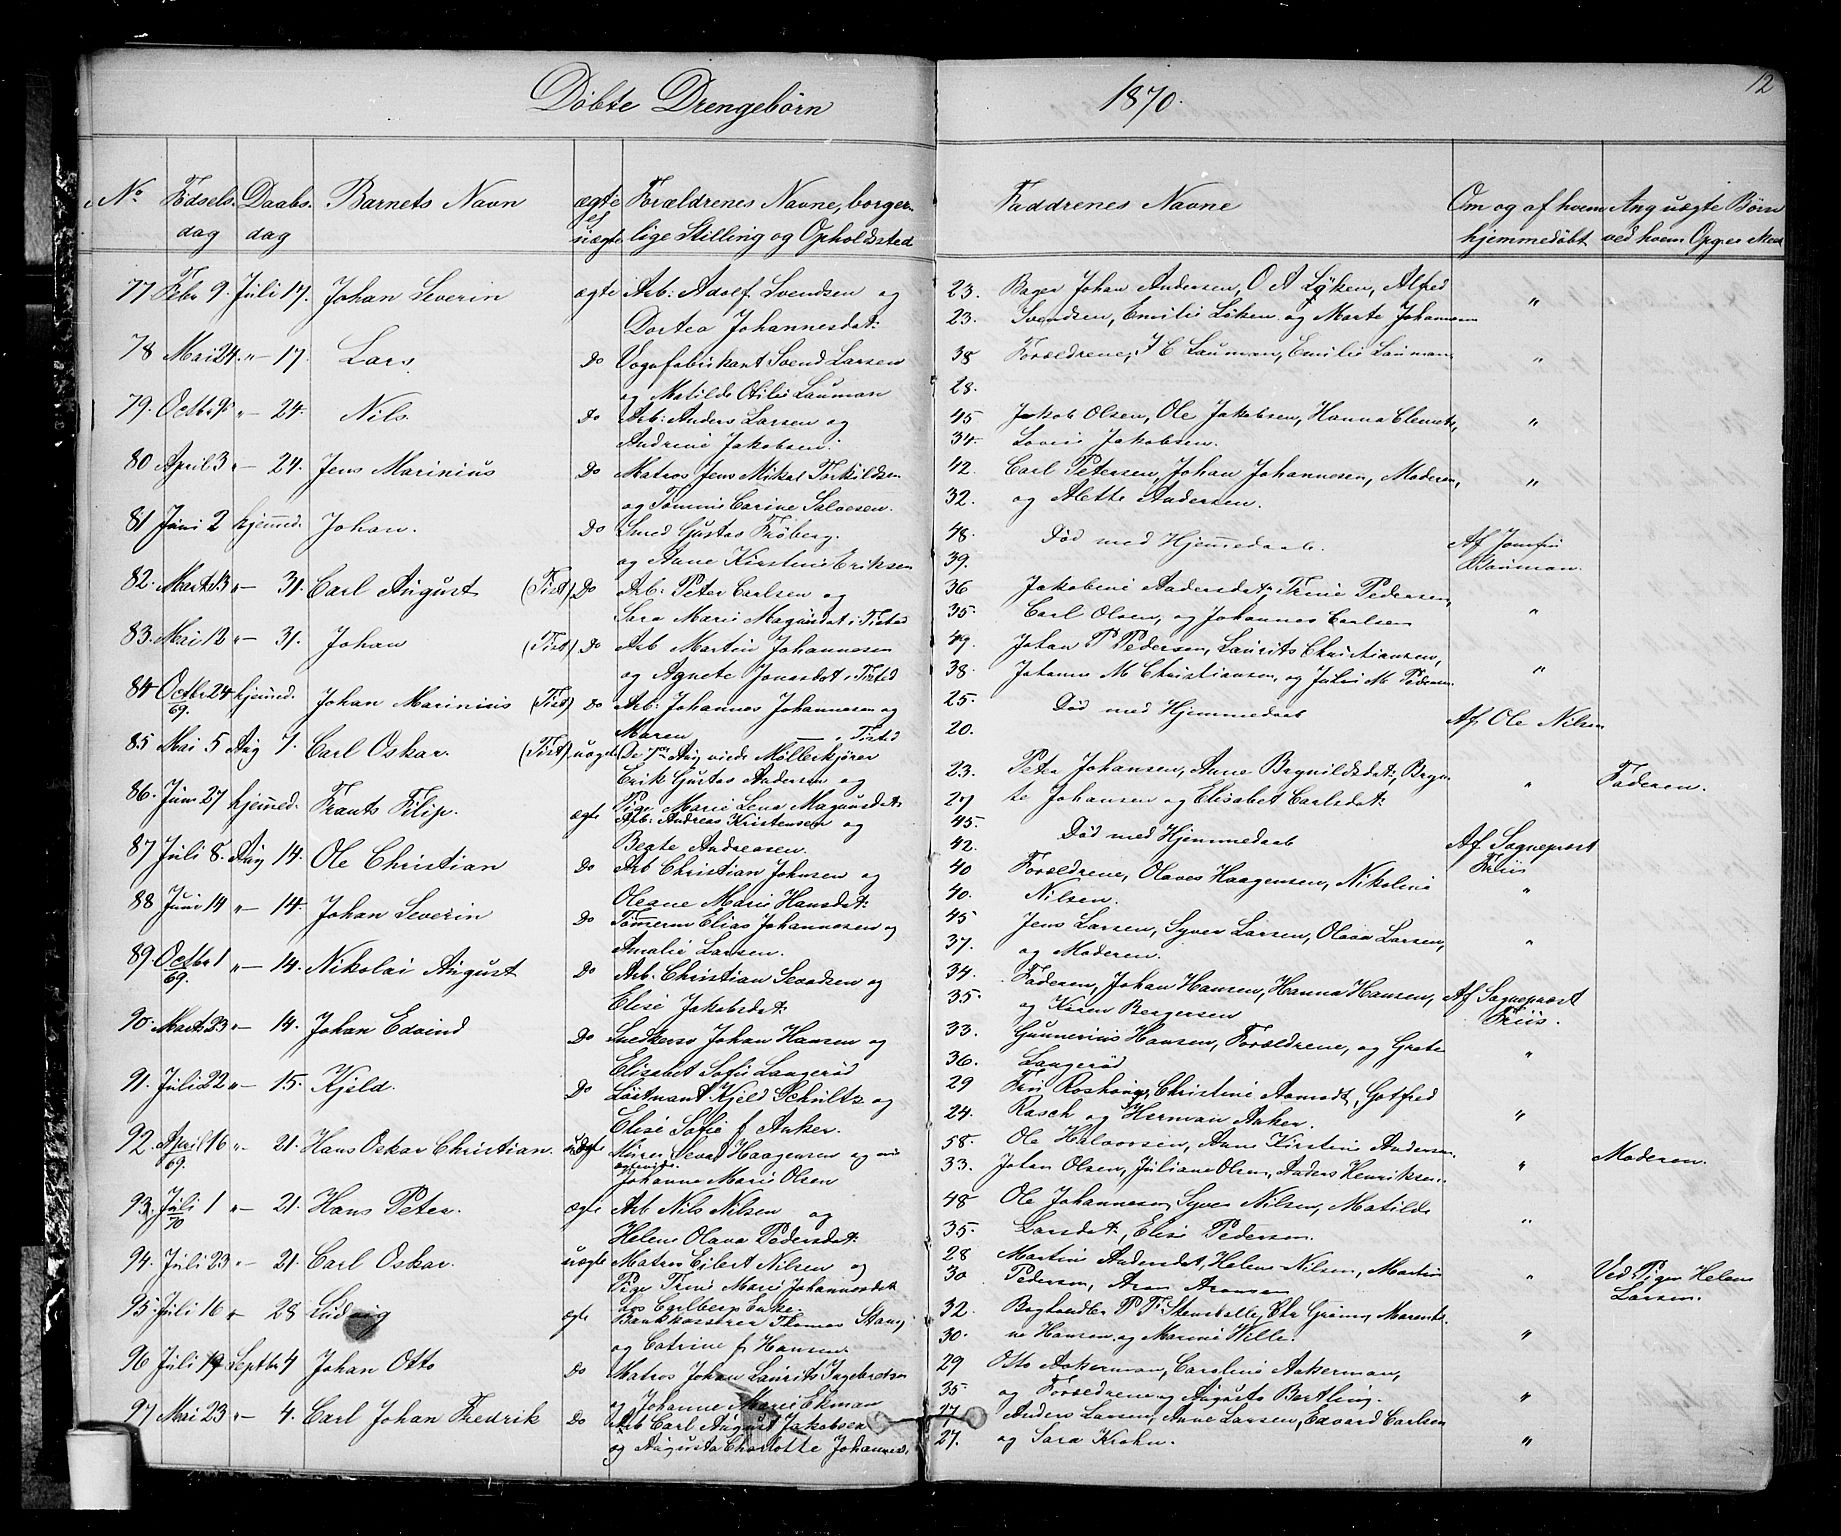 Døbte Drengebørn 1870. 12
No Fødsels dag Daabs dag Barnets Navn ægte el uægte Forældrenes Navne, borgerlige Stilling og Opholdssted Faddrenes Navne Om og af hvem hjemmedøbt Ang uægte Børn ved hvem Opgives
77 Febr 9. Juli 17. Johan Severin ægte Arb: Adolf Svendsen og 23. Bager Johan Andersen, O A Løken, Alfred "
Dortea Johannesdat: 23. Svendsen, Emilie Løken og Marte Johannsen
78 Mai 24. " - 17. Lars. Do Vognfabrikant Svend Larsen 38 Forældrene, J C Lauman, Emilie Lauman "
og Matilde Otilie Lauman 28.
79. Octbr 9 " - 24. Nils. Do Arb: Anders Larsen og 45 Jakob Olsen, Ole Jakobsen, Hanna Clemets, "
Andrine Jakobsen. 34. Lovise Jakobsen.
80 April 3 " - 24. Jens Marinius Do Matros Jens Mikal Torkildsen 42. Carl Petersen, Johan Johannesen, Moderen, "
og Tomine Carine Salvesen. 32. og Alette Andersen.
81 Juni 2 hjemmed. Johan. Do Smed Gustav Frøberg. 48. Død med Hjemmedaab. Af Jomfru
og Anne Kirstine Eriksen 39. Bauman.
82. Marts 13 " - 31. Carl August (Tist) Do Arb: Peter Carlsen og 36 Jakobine Andersdat: Trine Pedersen, "
Sara Marie Magnusdat i Tisted 35. Carl Olsen, og Johannes Carlsen
83. Mai 12 " - 31. Johan (Tist) Do Arb Martin Johannesen 49. Johan P Pedersen, Laurits Christiansen, "
og Agnete Jonasdat i Tisted 38. Johanne M Christiansen, og Julie M Pedersen.
84 Octbr 24 69. hjemmed. Johan Marinius (Tist) Do Arb: Johannes Johannesen og 25. Død med Hjemmedaab Af Ole Nilsen
Maren — i Tisted 20.
85 Mai 5 Aug 7. Carl Oskar. (Tist) uægte De 7de Aug viede Møllerkjører 23. Peter Johansen, Anne Bagnildsdat, Bagni " Faderen.
Erik Gustav Andersen og 27 te Johansen og Elisabet Carlsdat:
Pige Marie Lena Magnusdat:
86. Juni 27 hjemmed. Frants Filip. ægte Arb: Andreas Kristensen og 45. Død med Hjemmedaab Af Sognepræst
Berte Andreasen. 42. Friis
87 Juli 8. Aug 14. Ole Christian Do Arb Christian Johnsen og 40 Forældrene, Olaves Haagensen, Nikoline "
Oleane Marie Hansdat: 40. Nilsen.
88 Juni 14 " - 14. Johan Severin Do Tømerm Elias Johannesen og 45 Jens Larsen, Syver Larsen, Olava Larsen, "
Amalie Larsen. 37. og Moderen.
89. Octbr 1 69. " - 14. Nikolai August Do Arb. Christian Sevadsen og 34. Faderen, Johan Hansen, Hanna Hansen, Af Sognepræst
Elise Jakobsdat: 35. og Karen Bergersen Friis.
90. Marts 23 " - 14. Johan Edvind Do Snedkersv Johan Hansen og 33. Gunnerius Hansen, Forældrene, og Grete "
Elisabet Sofie Langerød 36. Langerød
91. Juli 22 " - 15. Kjeld. Do Løitnant Kjeld Schultz og 29 Fru Roshauw, Christine Aamodt, Gotfred "
Elise Sofie f Anker. 24. Rasch og Herman Anker.
92. April 16 69. " - 21. Hans Oskar Christian. uægte Murer Sevat Haagensen og nu 58. Ole Halvorsen, Anne Kirstine Andersen " Moderen.
egtevide Johanne Marie Olsen 33. Johan Olsen, Juliane Olsen, Anders Henriksen.
93. Juli 1 70 " - 21. Hans Peter. ægte Arb Nils Nilsen og 48 Ole Johannesen, Syver Nilsen, Matilde "
Helene Olava Pedersdat: 35. Larsdat, Elise Pedersen.
94. Juli 23 " - 21. Carl Oskar. uægte Matros Eilert Nilsen og 28 Martin Andersdat, Helene Nilsen, Martin " Ved Pigen Helene
Pige Trine Marie Johannesdat 30 Pedersen, Aron Aronsen Larsen.
Los Egelbergs Enke.
95 Juli 16 " - 28 Ludvig ægte Bankkasserer Thomas Stang 32. Boghandler P F Steensballe, Chr Grøner, Marents "
og Catrine f Hansen. 30. ne Hansen og Marine Wille.
96 Juli 19 Septbr 4 Johan Otto Do Matros Johan Laurits Ingebretsen 29 Otto Aakerman, Caroline Aakerman, "
og Johanne Marie Ekman 35. og Forældrene og Augusta Bertling.
97 Mai 23 " - 4. Carl Johan Fredrik Do Arb Carl August Jakobsen 27 Anders Larsen, Anne Larsen, Edvard Carlsen "
og Augusta Charlotte Johannesd. 27. og Sara Krohn.